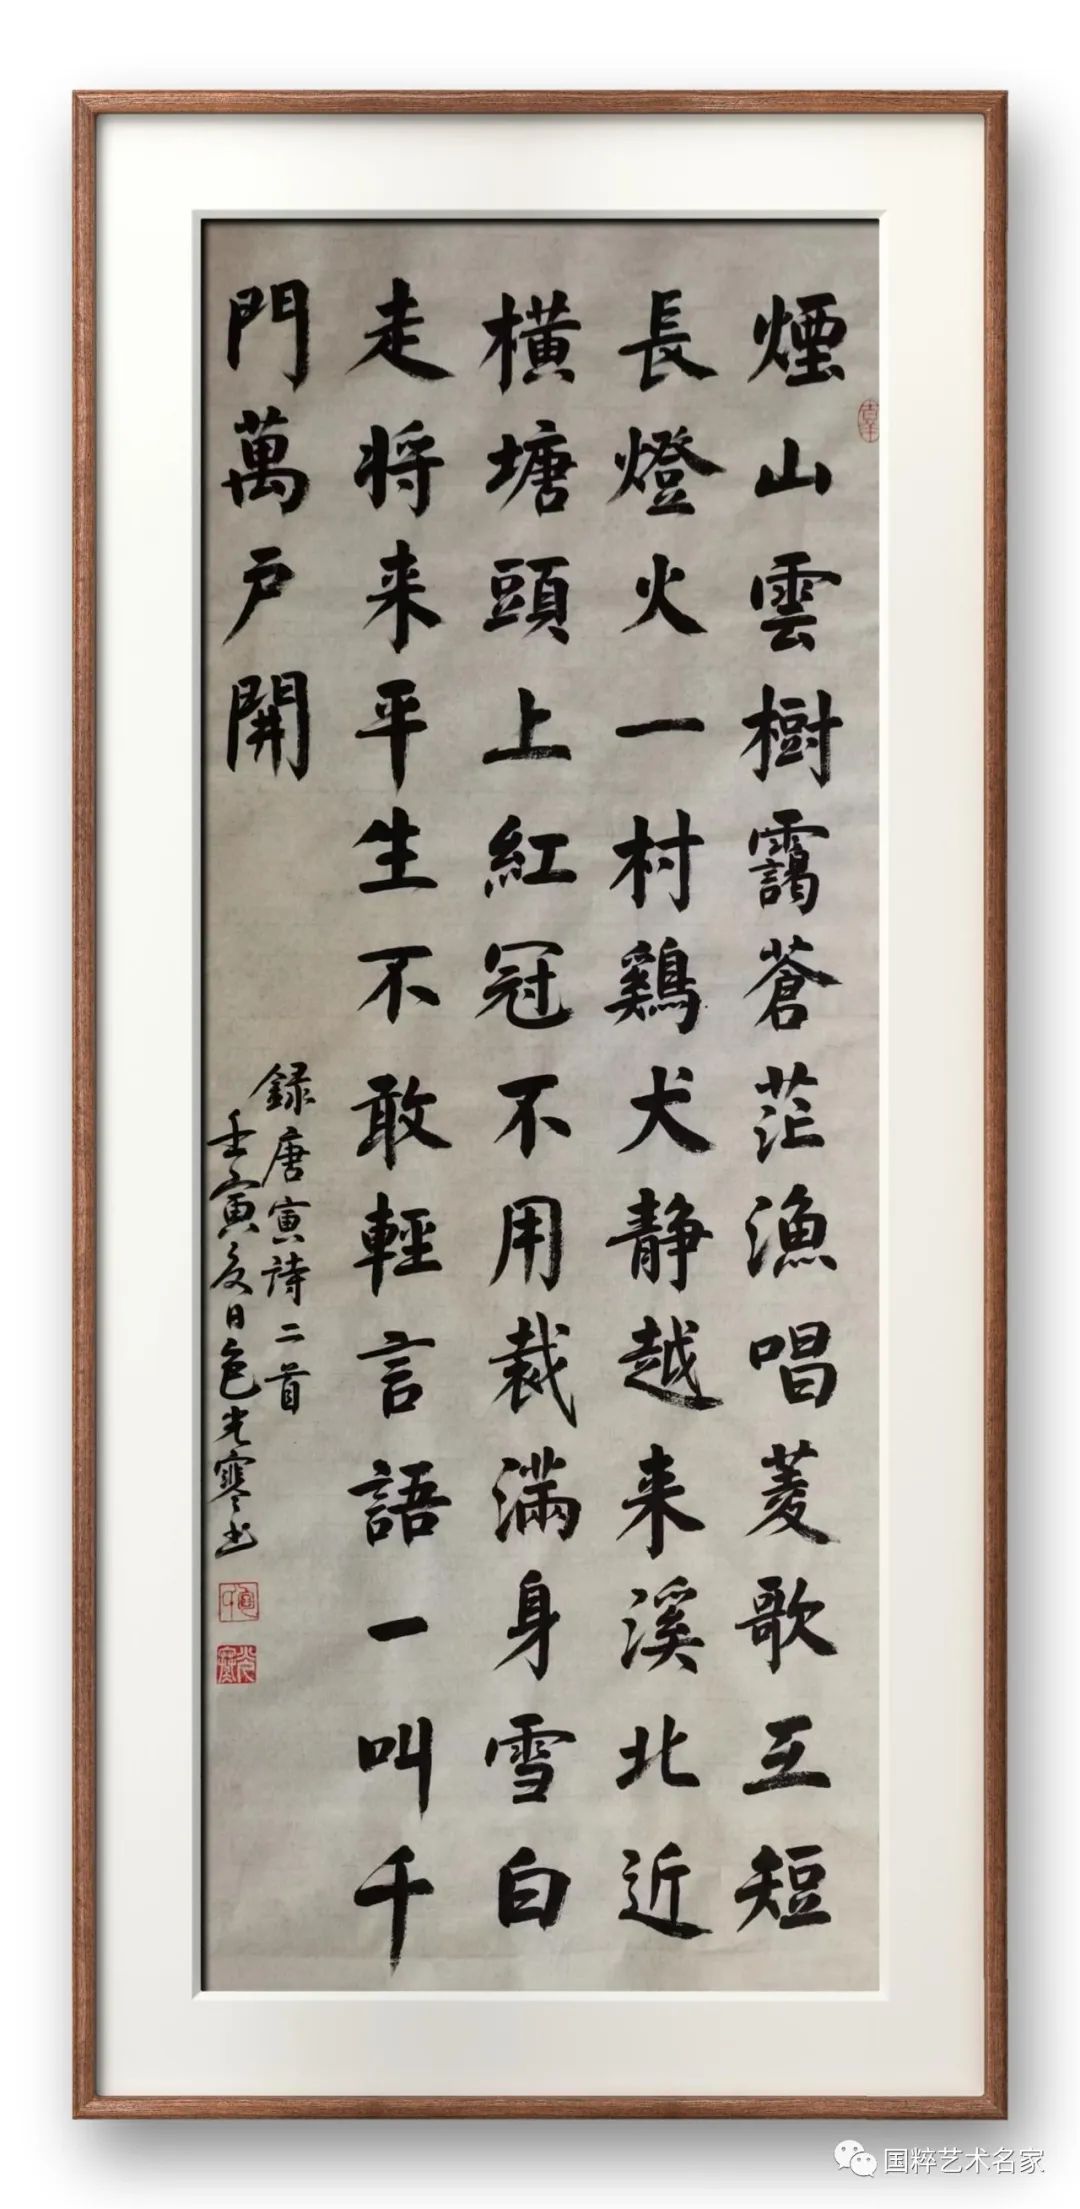 煙山雲樹靄蒼茫漁唱菱歌互短
長燈火一村鷄犬静越来溪北近
横塘頭上紅冠不用裁滿身雪白
走将来平生不敢輕言語一叫千
門萬户開
録唐寅詩二首
壬寅夏日包光寒书
光寒
国粹艺术名家